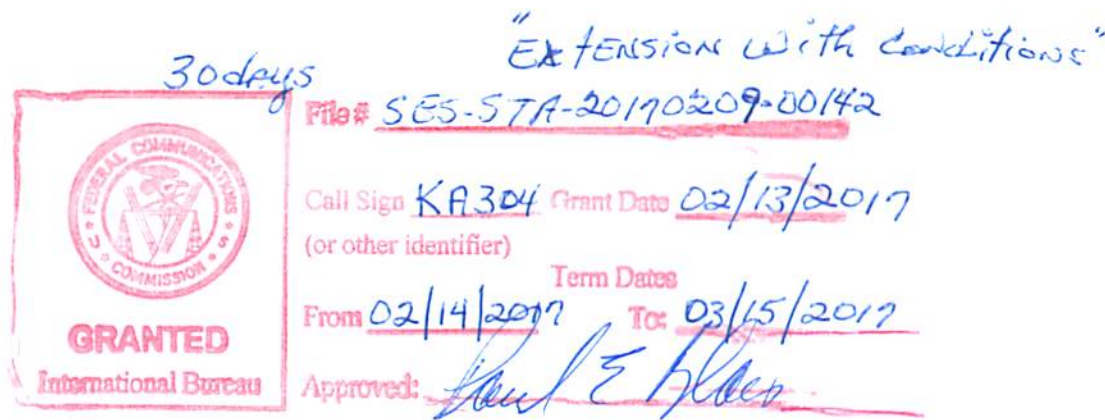 "EXTENSION with Conditions"
30 days
File # SES-STA-20170209-00142
FEDERAL COMMUNICATIONS
COMMISSION
U S
GRANTED
International Bureau
Call Sign KA304 Grant Date 02/13/2017
(or other identifier)
Term Dates
From 02/14/2017 To: 03/15/2017
Approved: Paul E